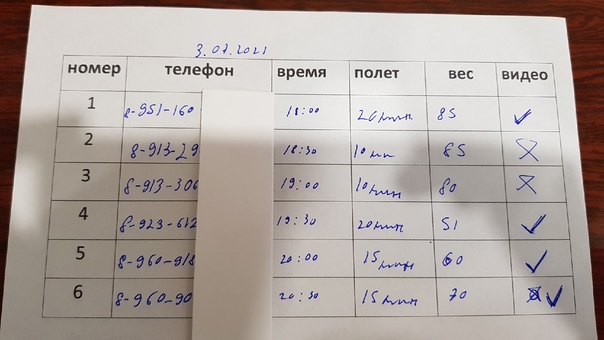 3.07.2021
номер телефон время полет вес видео
1 8-951-160 18:00 20мин 85 ✓
2 8-913-29 18:30 10мин 65 X
3 8-913-306 19:00 10мин 80 X
4 8-923-612 19:30 20мин 51 ✓
5 8-960-918 20:00 15мин 60 ✓
6 8-960-90 20:30 15мин 70 ✓